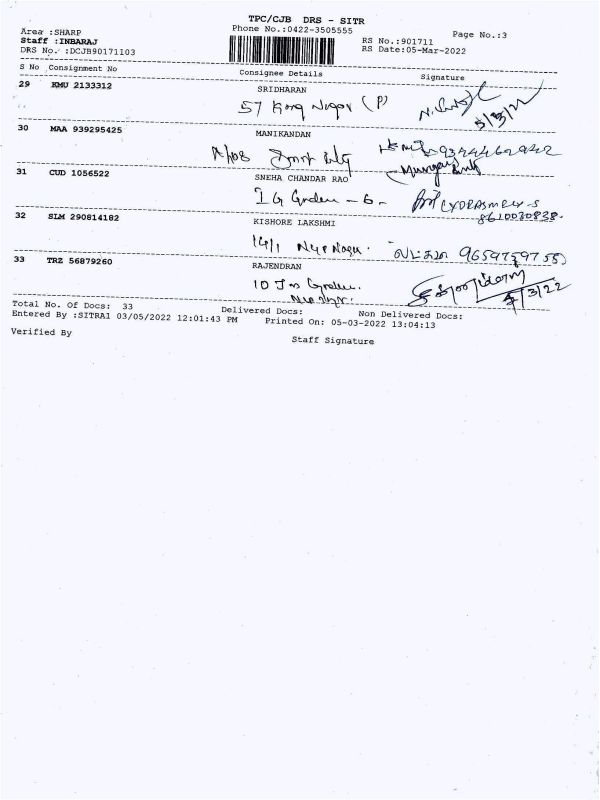 TPC/CJB DRS - SITR
Phone No.:0422-3505555
Page No.:3
Area :SHARP
Staff :INBARAJ
RS No.:901711
DRS No. :DCJB90171103
RS Date:05-Mar-2022
S No Consignment No Consignee Details Signature
29 KMU 2133312 SRIDHARAN
57 Nagar (P)
5/3/22
30 MAA 939295425 MANIKANDAN
31 CUD 1056522 SNEHA CHANDAR RAO
I G Garden - 6 -
8610030838.
32 SLM 290814182 KISHORE LAKSHMI
14/1 Nagar.
33 TRZ 56879260 RAJENDRAN
10 Garden.
/3/22
Total No. Of Docs: 33 Delivered Docs: Non Delivered Docs:
Entered By :SITRA1 03/05/2022 12:01:43 PM Printed On: 05-03-2022 13:04:13
Verified By
Staff Signature